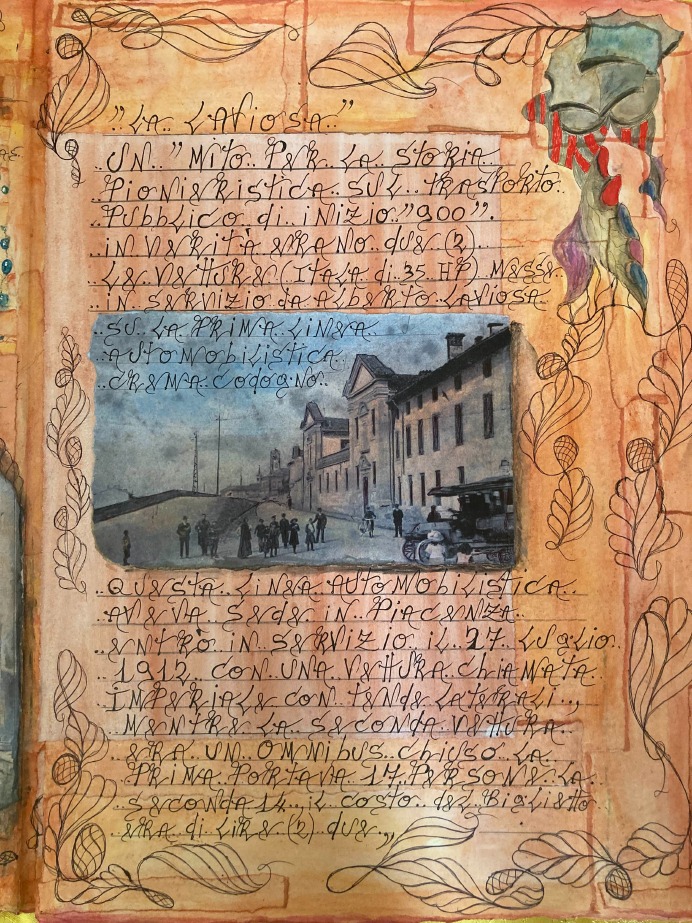 "LA LAViOSA"
UN "MiTO PER LA STORiA
PiONiERiSTiCA SUL TRASPORTO
PUbbLiCO di iNiZiO "900".
iN VERiTÀ ERANO dUE (2)
LE VETTURE (iTALA di 35 HP) MESSE
iN SERViZiO dA ALbERTO LAViOSA
SU LA PRiMA LiNEA
AUTOMObiLiSTiCA
CREMA COdOgNO
QUESTA LiNEA AUTOMObiLiSTiCA
AVEVA SEdE iN PiACENZA
ENTRÒ iN SERViZiO iL 27 LUgLiO
1912 CON UNA VETTURA ChiAMATA
iMPERiALE CON TENdE LATERALi.,
MENTRE LA SECONdA VETTURA
ERA UN OMNibUS ChiUSO LA
PRiMA PORTAVA 17 PERSONE LA
SECONdA 14 iL COSTO dEL BigLiETTO
ERA di LiRE (2) dUE.,,